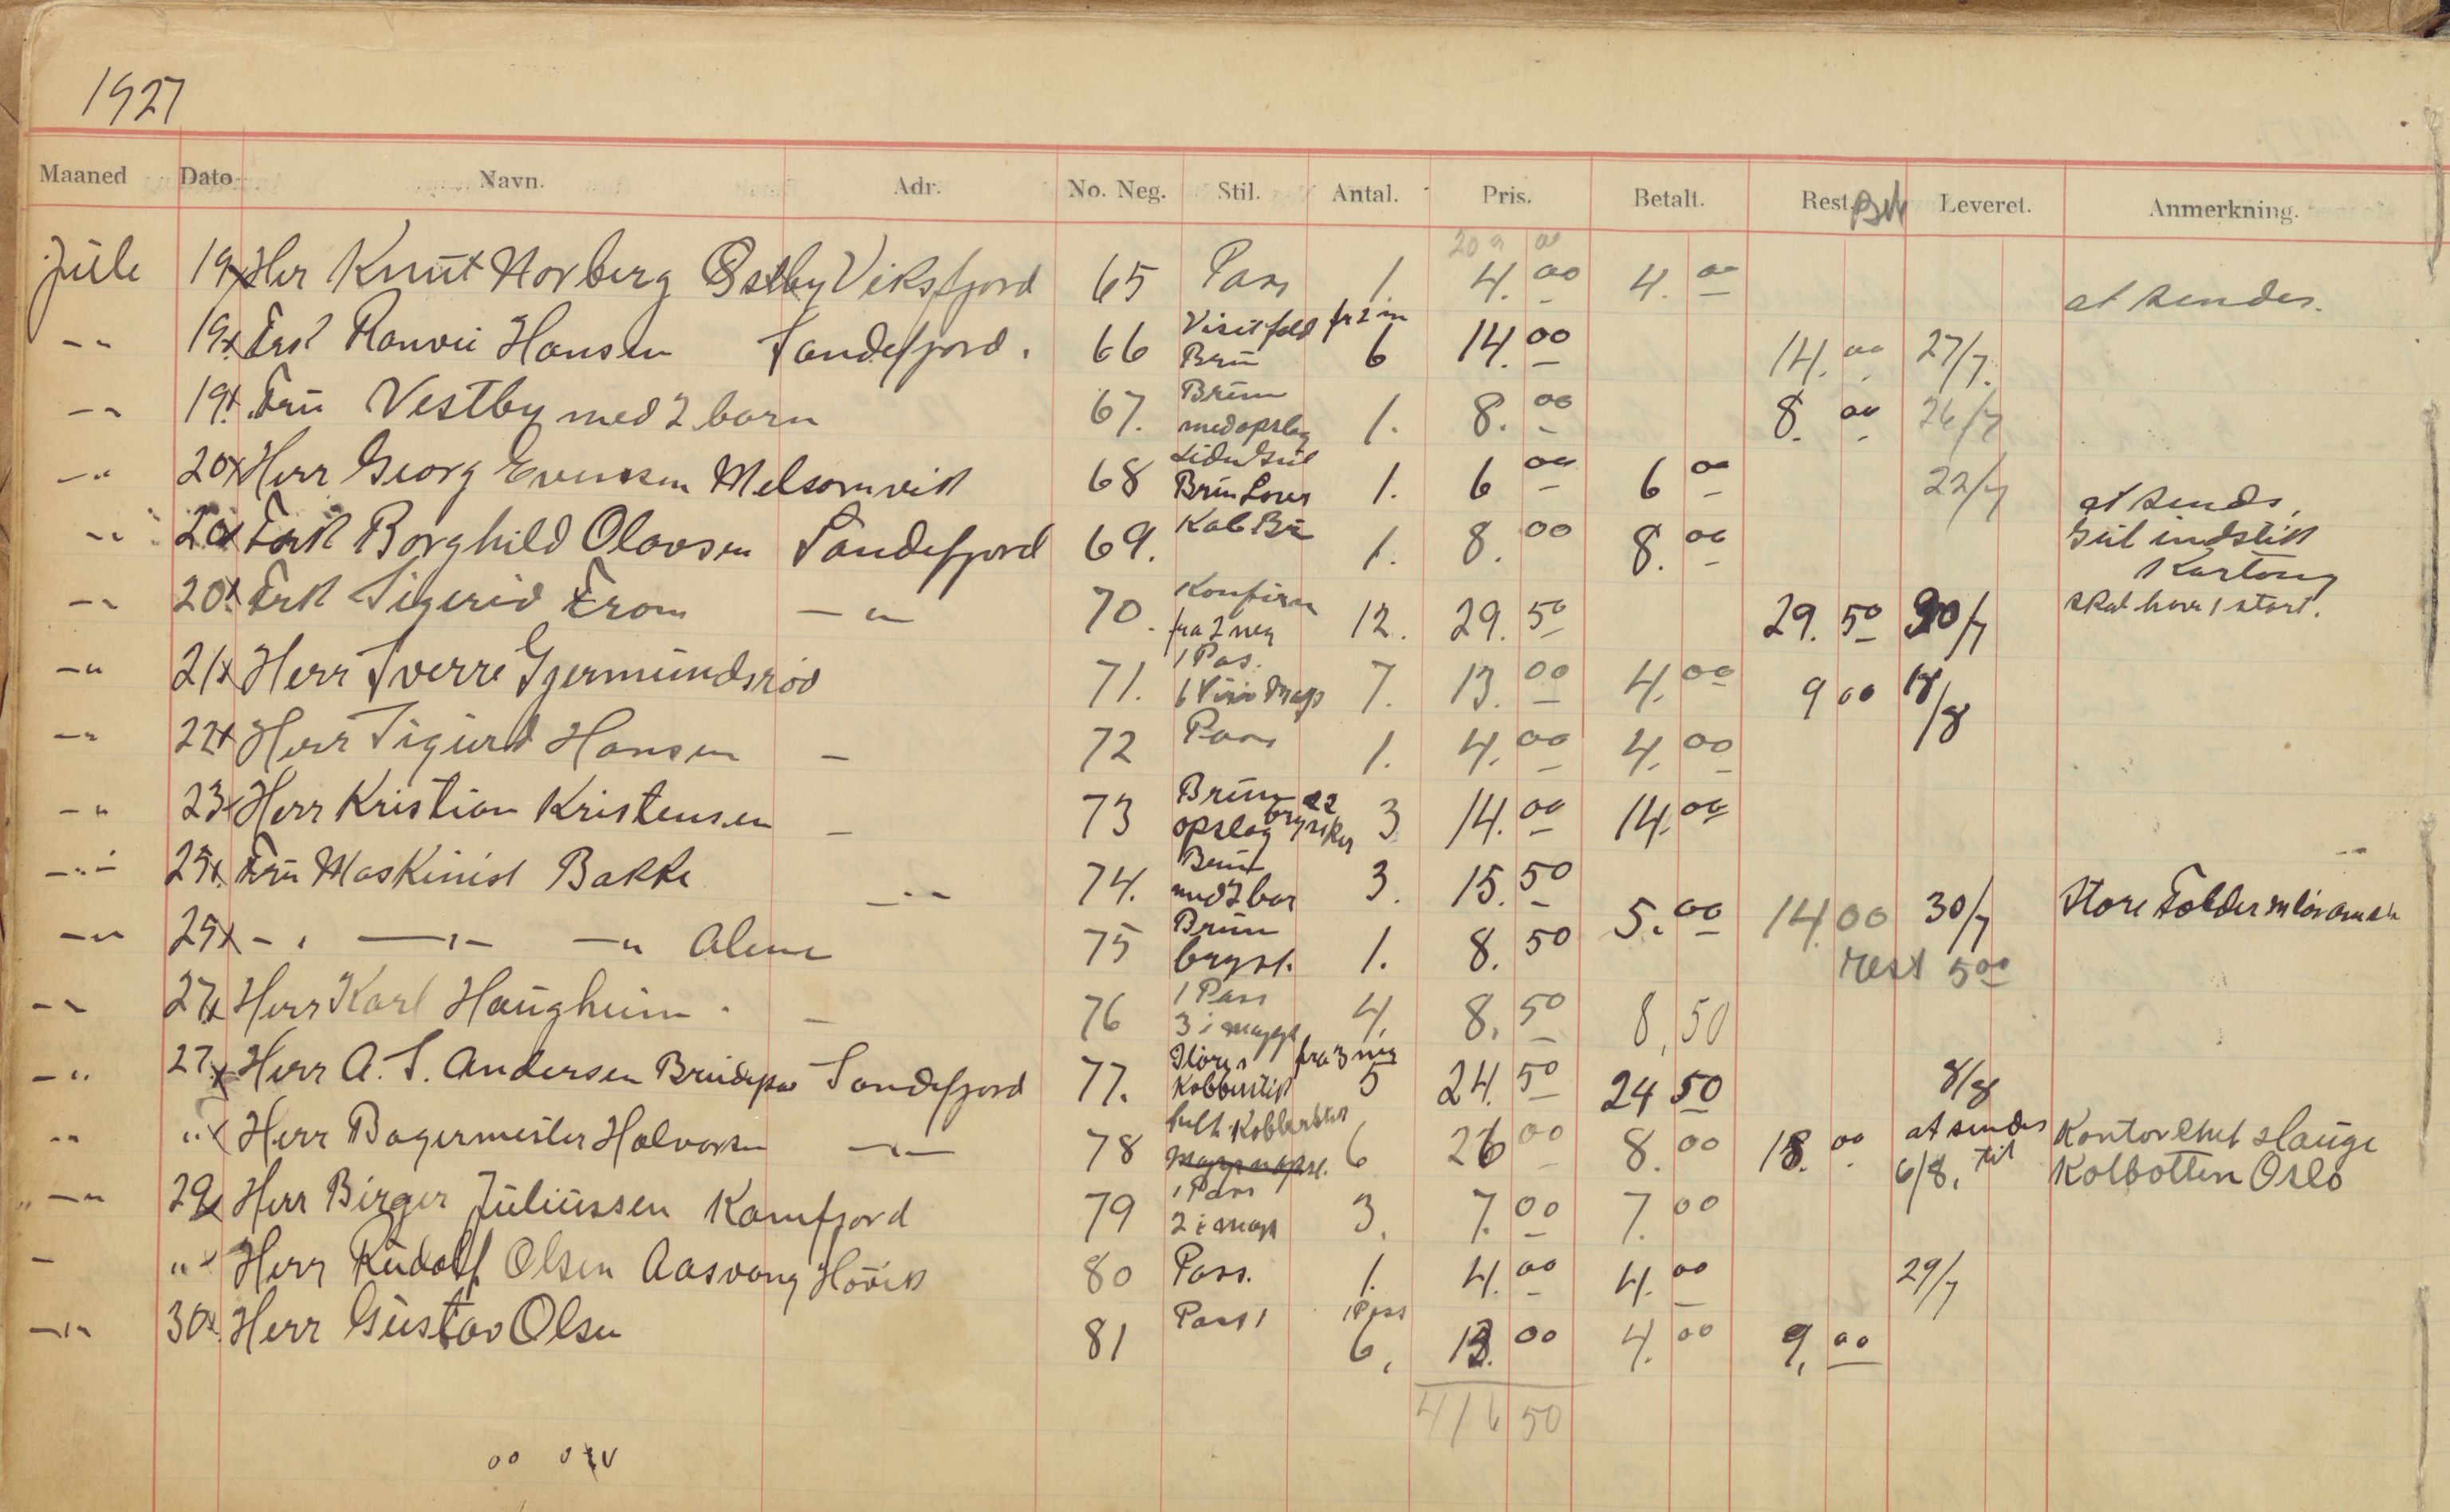 1927
Maaned Dato Navn. Adr. No. Neg. Stil. Antal. Pris. Betalt. Rest. Leveret. Anmerkning.
209 00
Juli 19 x Herr Knut Norberg Østby Viksfjord 65 Pass 1. 4.00 4.00 at sendes.
-"- 19 x Frk Ranvei Hansen Sandefjord. 66 Visitfold fr 2 n Brun 6 14.00 14.00 27/7.
-"- 19 x Fru Vestby med 2 barn 67. Brun med opslag 1. 8.00 8.00 26/7
-"- 20 x Herr Georg Evensen Melsomvik 68 Brun 1. 6 00 6 00 22/7
-"- 20 x Frk Borghild Olavsen Sandefjord 69. Kab Br 1. 8.00 8.00 at sends, Gul indstik Kartong
-"- 20 x Frk Sigerid From -"- 70. Konfirm fra 2 neg 12. 29.50 29.50 30/7 skal have 1 stort.
-"- 21 x Herr Sverre Gjermundsrød 71. 1 Pas. 6 Visit Map 7. 13.00 4.00 9 00 17/8
-"- 22 x Herr Sigurd Hansen - 72 Pass 1. 4.00 4.00
-"- 23 x Herr Kristian Kristensen - 73 Brun opslag 3 14.00 14.00
-"- 25 x Fru Maskinist Bakke -"- 74. Brun med 2 bar 3. 15.50
5.00 14.00 30/7 Store Folder
-"- 25 x -"- -"- -"- Alene 75 Brun bryst. 1. 8.50
rest 5 00
-"- 27 x Herr Karl Haugheim - 76 1 Pass 3 i mappe 4. 8.50 8,50
-"- 27. x Herr A. S. Andersen Brudepar Sandefjord 77. Kobberstik fra 3 neg 5 24.50 24 50 8/8
-"- " x Herr Bagermester Halvorsen -"- 78 6 26 00 8.00 18.00 at sendes til 6/8. Kontorchef Hauge Kolbotten Oslo
-"- 29 x Herr Birger Juliussen Kamfjord 79 1 Pass 2 i map 3. 7.00 7.00
- " x Herr Rudolf Olsen Aasvang Hövik 80 Pass. 1. 4.00 4.00 29/7
-"- 30 x Herr Gustav Olsen 81 Pass 1 1 Pass 6, 13.00 4.00 9,00
416 50